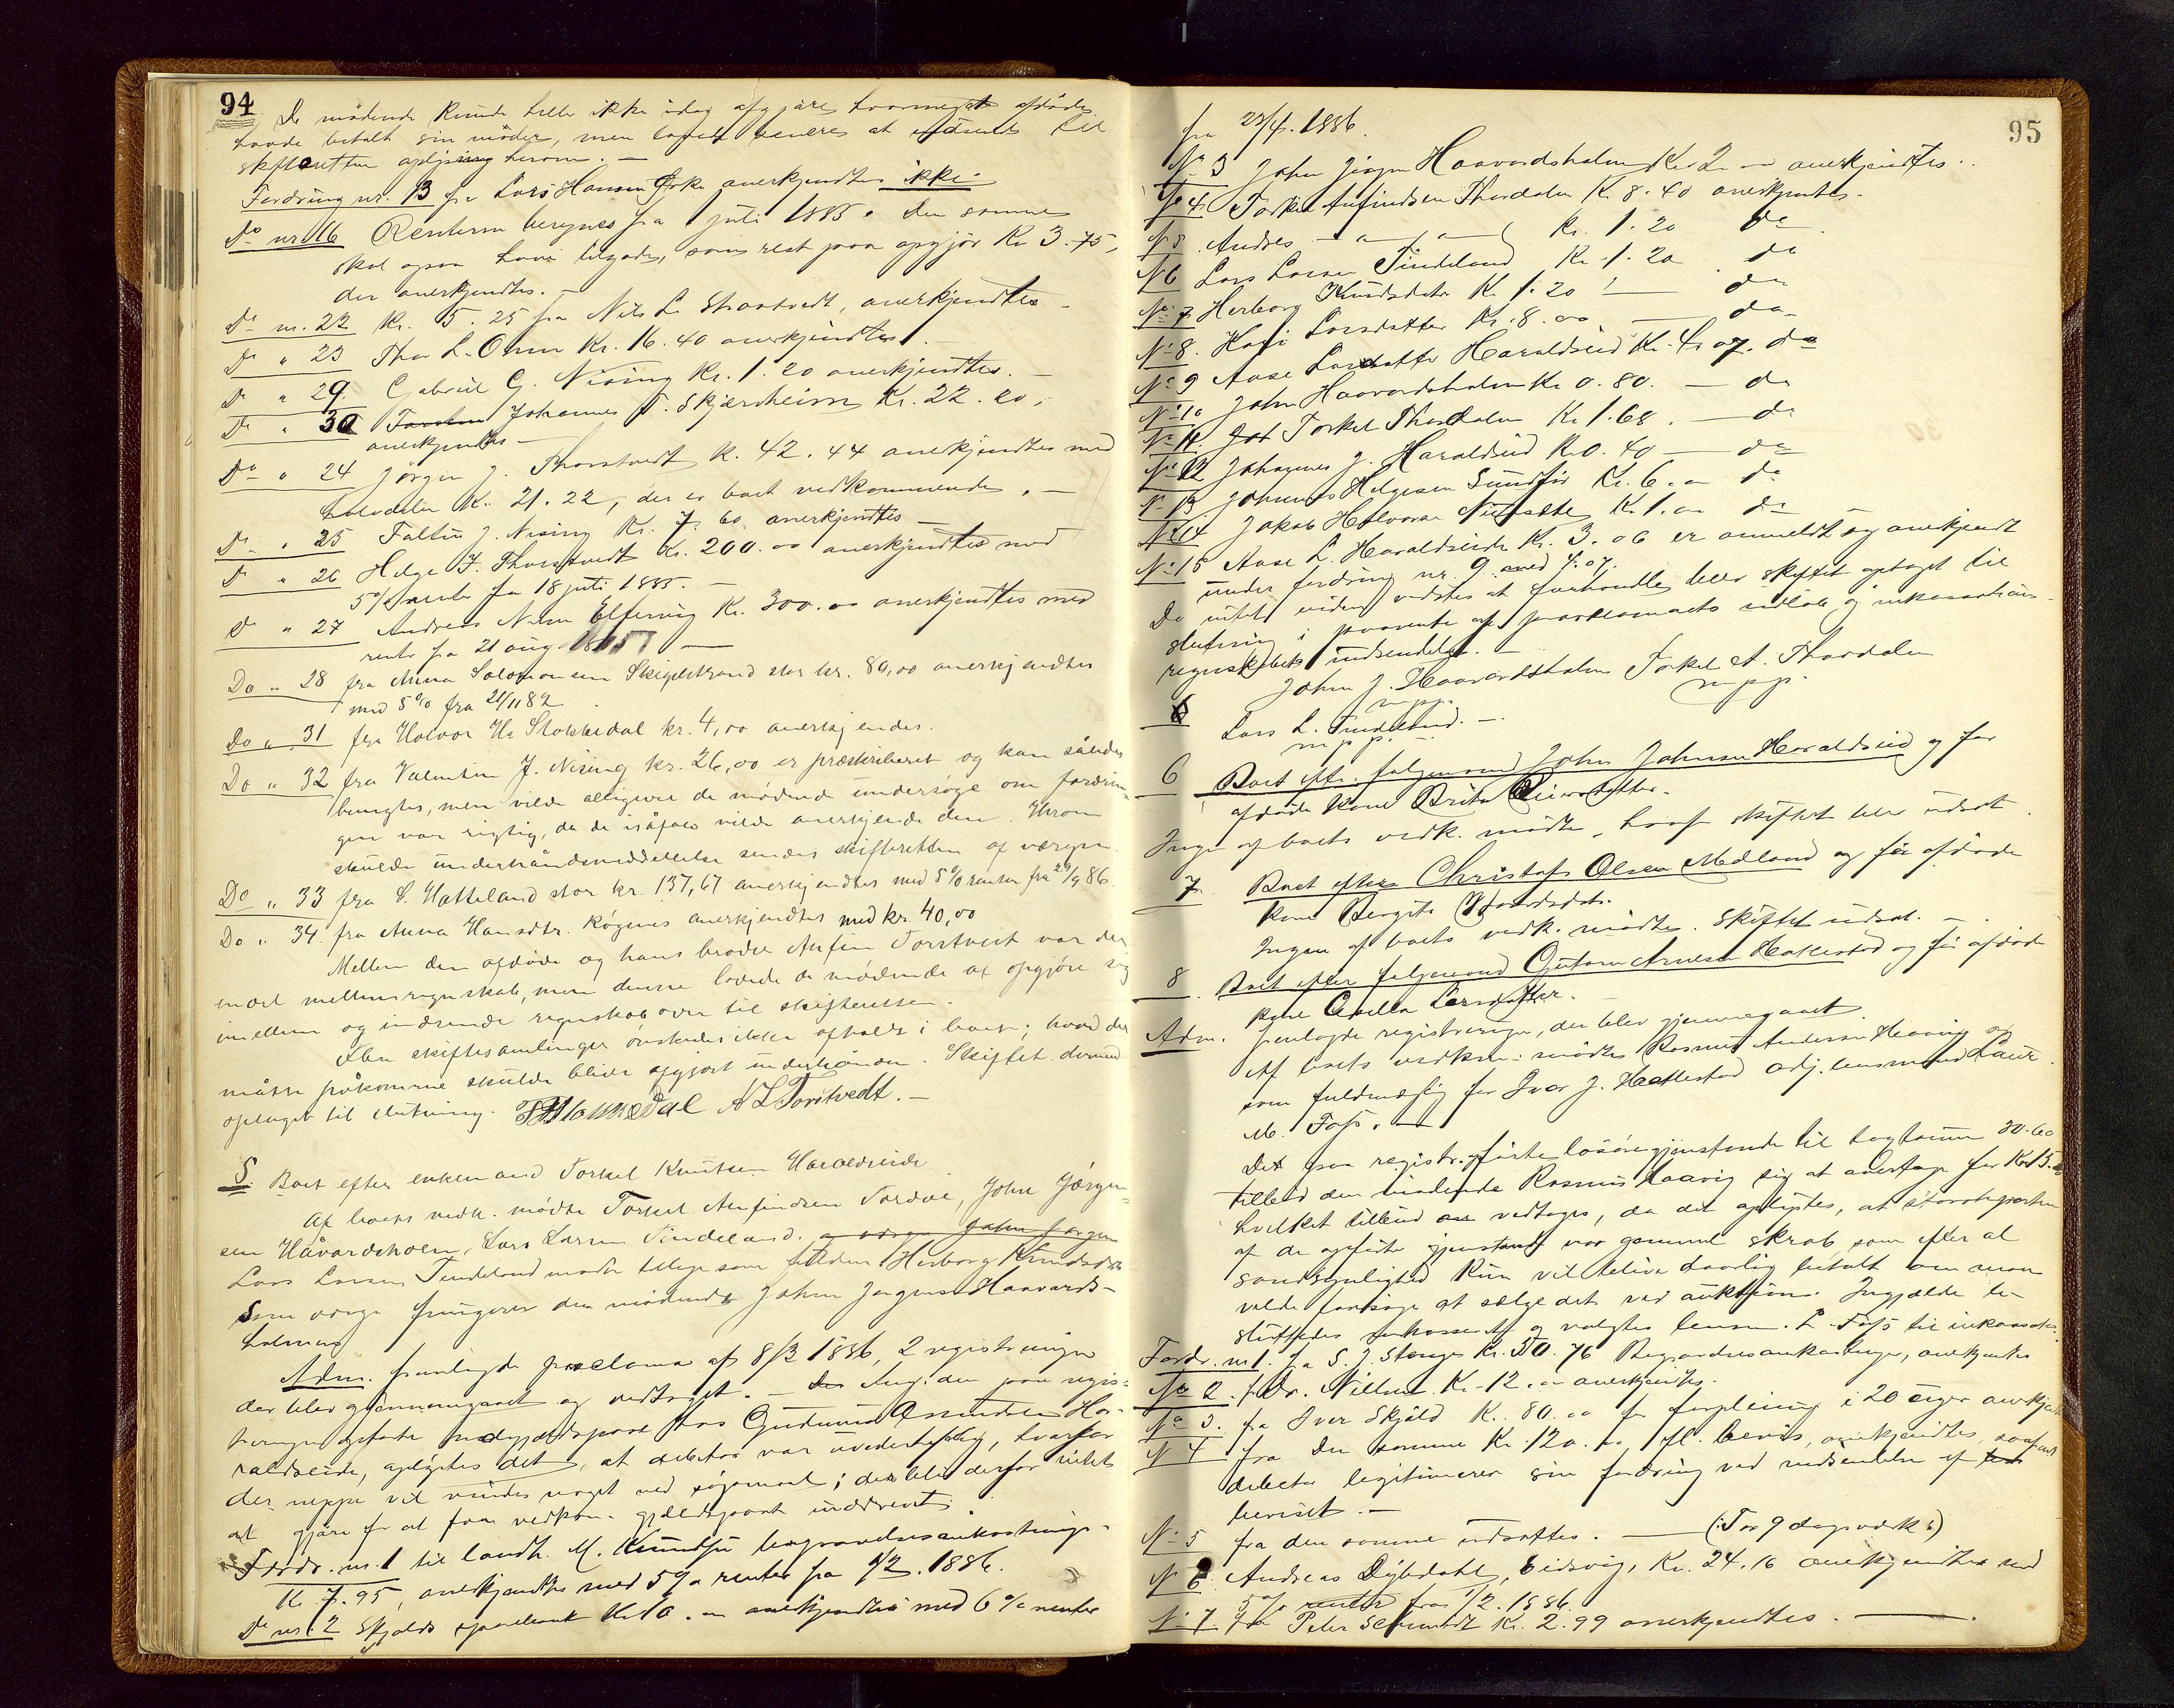 94
De mødende kunde heller ikke idag afgjøre hvormeget afdøde
havde betalt sin moder, men lovede at indsende til
skifteretten oplysning herom. —
Fordring nr. 13 fra Lars Hansen anerkjendtes ikke.
Do nr. 16 Renterne beregnes fra 1 juli 1885. Den samme
skal ogsaa have tilgode, som rest paa opgjør Kr 3.75,
der anerkjendtes. —
Do nr. 22 Kr. 5.25 fra Nils L. anerkjendtes —
Do " 23 Thor L. Kr. 16.40 anerkjendtes.
Do " 29. Gabriel G. Nising Kr. 1.20 anerkjendtes. —
Do " 30 Johannes T. Skjærsheim Kr. 22.20,
anerkjendtes —
Do " 24 Jørgen J. Thorstvedt K. 42.44 anerkjendtes med
halvdelen Kr. 21.22, der er boet vedkommende. —
Do " 25 Faltin J. Nising Kr. 7.60 anerkjendtes —
Do " 26 Helge J. Thorstvedt Kr. 200.00 anerkjendtes med
5% rente fra 18 juli 1885. —
Do " 27 Andreas Nilsen Elfervig Kr. 300.00 anerkjendtes med
rente fra 21 aug 1885 —
Do " 28 fra Anna Salomonsen Skigelstrand stor kr. 80,00 anerkjendtes
med 5% fra 21/11 82
Do " 31 fra Halvor Hs Stakkedal kr. 4,00 anerkjendes.
Do " 32 fra Valentin J. Nising kr. 26,00 er præskriberet og kan således
benegtes, men vilde alligevel de mødende undersøge om fordrin-
gen var rigtig, da de isåfald vilde anerkjende den. Herom
skulde underhåndsmeddelelse sendes skifteretten af værgen.
Do " 33 fra S. Hatteland stor kr. 137,67 anerkjendtes med 5% renter fra 29/9 86.
Do " 34 fra Anna Hansdtr. Køgenes anerkjendtes med kr. 40,00
Mellem den afdøde og hans broder Anfin Torstveit var der
endel mellemregnskab, men denne lovede de mødende at opgjøre sig
imellem og indsende regnskab over til skifteretten.
Flere skiftesamlinger ønskedes ikke afholdt i boet; hvad der
måtte påkomme skulde blive afgjort underhånden. Skiftet dermed
optaget til slutning. A L Torstvedt. —
5. Boet efter enkemand Torkel Knutsen Haraldseide
Af boets vedk. mødte Torkel Anfindsen Tordal, John Jørgen-
sen Håvardsholm, Lars Larsen Tindeland. og værge John Jørgen
Lars Larsen Tindeland møder tillige som fuldm. Herborg Knudsdtr
Som værge fungerer den mødende John Jørgensen Haavards-
holmen
Adm. fremlagde proclama af 8/3 1886, 2 registreringer
der blev gjennemgaaet og vedtaget. — Ang. den paa regis-
treringen opførte gjældspost hos Gudmund Asmundsen Ha-
raldseide, oplystes det, at debitor var uvederheftig, hvorfor
der neppe vil vindes noget ved søgsmaal; der blev derfor intet
at gjøre for at faa vedkom. gjældspost inddrevet.
Fordr. nr. 1 til landh. M. Knudsen begravelsesomkostninger
Kr. 7.95, anerkjendtes med 5% renter fra 1/2. 1886.
Do nr. 2 Skjolds sparebank Kr 10.00 anerkjendtes med 6% renter
95
fra 23/4. 1886.
No 3 John Jørgen Haavardsholm Kr 2.00 anerkjendtes.
No 4 Torkel Anfindsen Thordalen Kr 8.40 anerkjentes.
No 5 Andres — " — " — Kr. 1.20 do
No 6 Lars Larsen Tindeland Kr. 1.20 do
No 7 Herborg Knudsdatter Kr 1.20 — do
No 8. Kari Larsdatter Kr. 8.00 — do
No 9 Aase Larsdatter Haraldseid Kr. 4.07. do
No 10 John Haavardsholm Kr 0.80. — do
No 11. Torkel Thordalen Kr 1.68. — do
No 12 Johannes J. Haraldseid Kr 0.40 — do
No 13. Johannes Helgesen Sundfør Kr. 6.00 do
No 14 Jakob Halvorsen Kr. 1.00 do
No 15 Aase L. Haraldseide Kr. 3.06 er anmeldt og anerkjendt
under fordring nr. 9 med 4.07.
Da intet videre vidstes at forhandle blev skiftet optaget til
slutning i paavente af proklamaets udløb og inkassations-
regnskabets indsendelse. —
John J. Haavardsholm Torkel A. Thordalen
m.p.p. m.p.p.
Lars L. Tindeland. —
m.p.p.
6 Boet eft. følgemand John Johnsen Haraldseid og før
afdøde kone Brita Reiersdatter.
Ingen af boets vedk. mødte, hvorfor skiftet blev udsat.
7. Boet efter Christofer Olsen Medland og før afdøde
kone Bergite
Ingen af boets vedk. mødte. Skiftet udsat. —
8. Boet efter følgemand Gutorm Arnesen Hatlestad og før afdøde
kone Larsdatter. —
Adm. fremlagde registreringen, der blev gjennemgaaet
Af boets vedkom. mødte Rasmus Andersen Haavig og
som fuldmægtig for Iver J. Hatlestad adj. lensmand Laur.
M. Foss. —
Det paa registr. opførte løsøregjenstande til taxtsum 30.60
tilbød den mødende Rasmus Haavig sig at overtage for Kr 15.00
hvilket tilbud vedtoges, da det oplystes, at størsteparten
af de opførte gjenstande var gammel skrab, som efter al
sandsynlighed kun vil blive daarlig betalt om man
vilde forsøge at sælge det ved auktion. Ingjælde be-
sluttedes inkasseret og valgtes lensm. L. Foss til inkassator.
Fordr. nr 1. fra S. J. Stange Kr. 50.76 Begravelsesomkostninger, anerkjentes
No 2. f. Dr. Nilsen Kr. 12.00 anerkjendtes.
No 3. fra Iver Skjold K. 80.00 for forpleining i 20 uger anerkjendtes
No 4 fra Den samme Kr. 120.00 ifl. bevis, anerkjendtes, saafremt
debitor legitimerer sin fordring ved indsendelse af
beviset. —
No 5 fra den samme udsattes. — (: For 9 dagsværk :)
No 6. Andreas Dybdahl, Eidsvig, Kr. 24.16 anerkjendtes med
5% renter fra 1/2. 1886.
No 7. fra Peter Schmidt Kr. 2.99 anerkjendtes. —